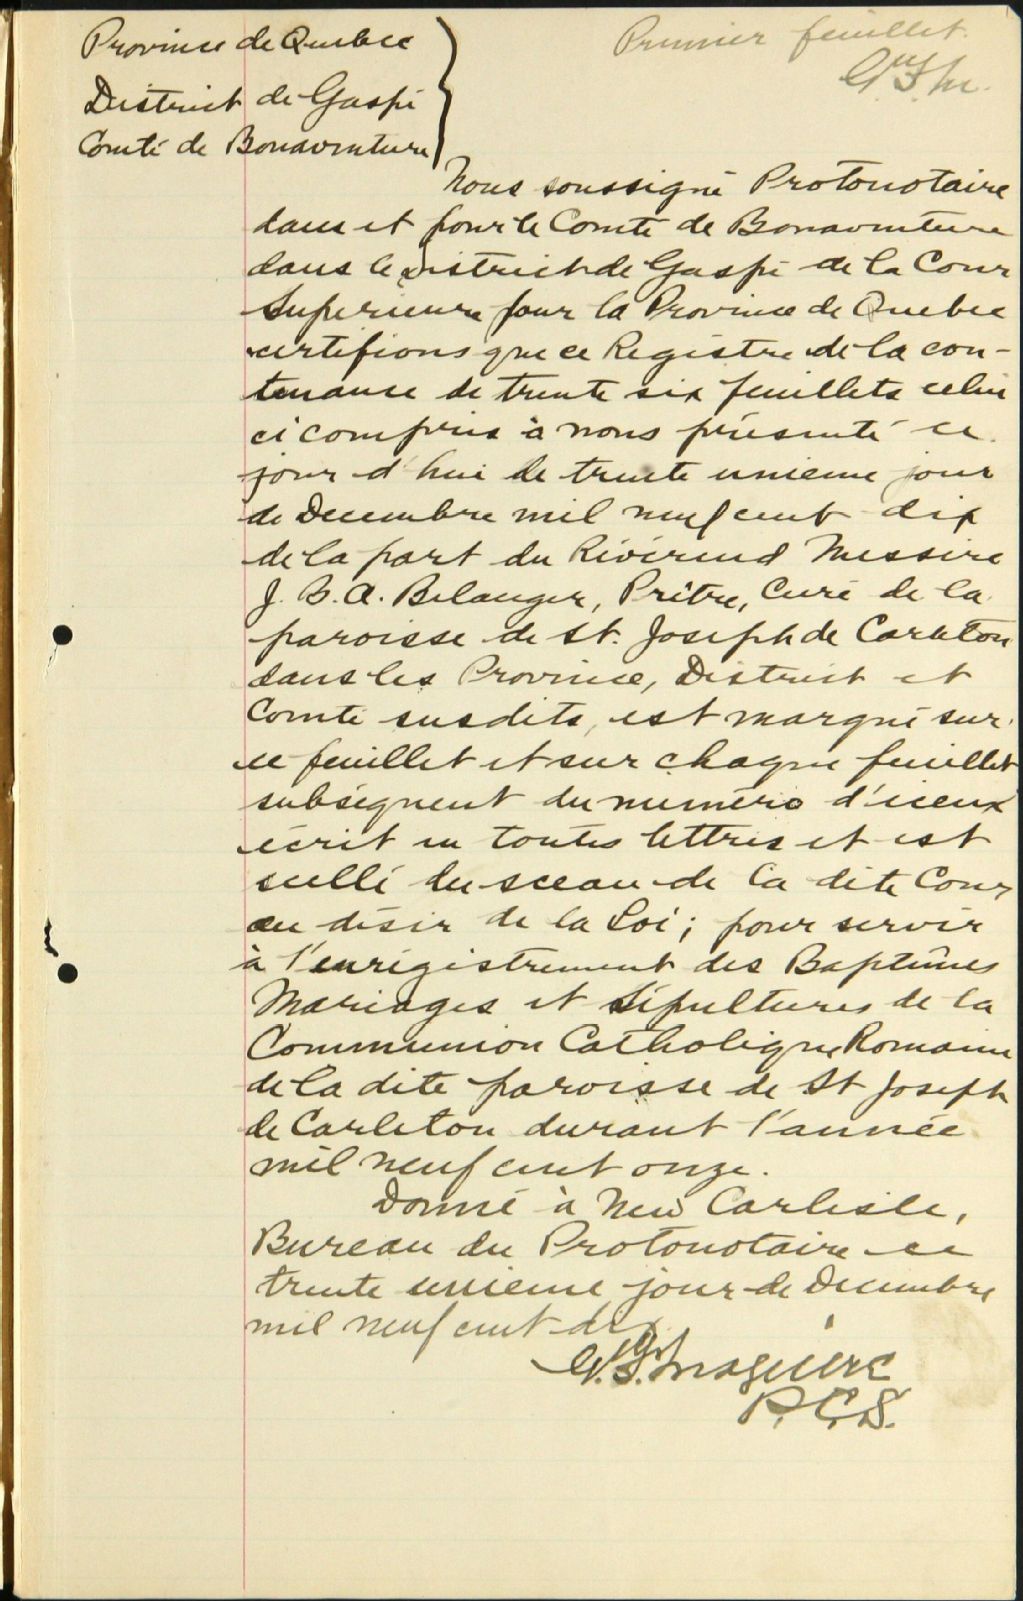 Province de Quebec
District de Gaspé
Comté de Bonaventure
Premier feuillet.
Nous soussigné Protonotaire
dans et pour le Comté de Bonaventure
dans le District de Gaspé de la Cour
Superieure pour la Province de Quebec
certifions que ce Registre de la con-
tenance de trente six feuillets celui
ci compris à nous présenté ce
jour d'hui le trente unieme jour
de Decembre mil neuf cent dix
de la part du Révérend Messire
J. B. A. Belanger, Prêtre, Curé de la
paroisse de St. Joseph de Carleton
dans les Province, District et
Comté susdits, est marqué sur
ce feuillet et sur chaque feuillet
subséquent du numéro d'iceux
écrit en toutes lettres et est
scellé du sceau de la dite Cour
au désir de la Loi; pour servir
à l'enrégistrement des Baptêmes
Mariages et Sépultures de la
Communion Catholique Romaine
de la dite paroisse de St Joseph
de Carleton durant l'année
mil neuf cent onze.
Donné à New Carlisle,
Bureau du Protonotaire ce
trente unieme jour de Decembre
mil neuf cent dix
Maguire
P.C.S.